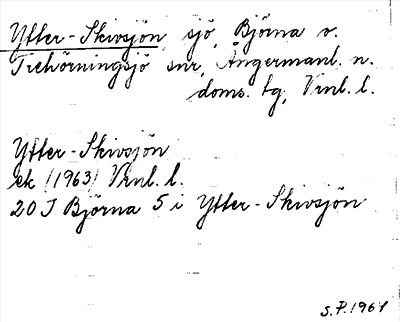 Ytter-Skivsjön, sjö, Björna o.
Trehörningsjö snr, Ångermanl. n.
doms. tg, Vrnl. l.
Ytter-Skivsjön
ek (1963) Vrnl. l.
20 J Björna 5 i Ytter-Skivsjön
S.P. 1967